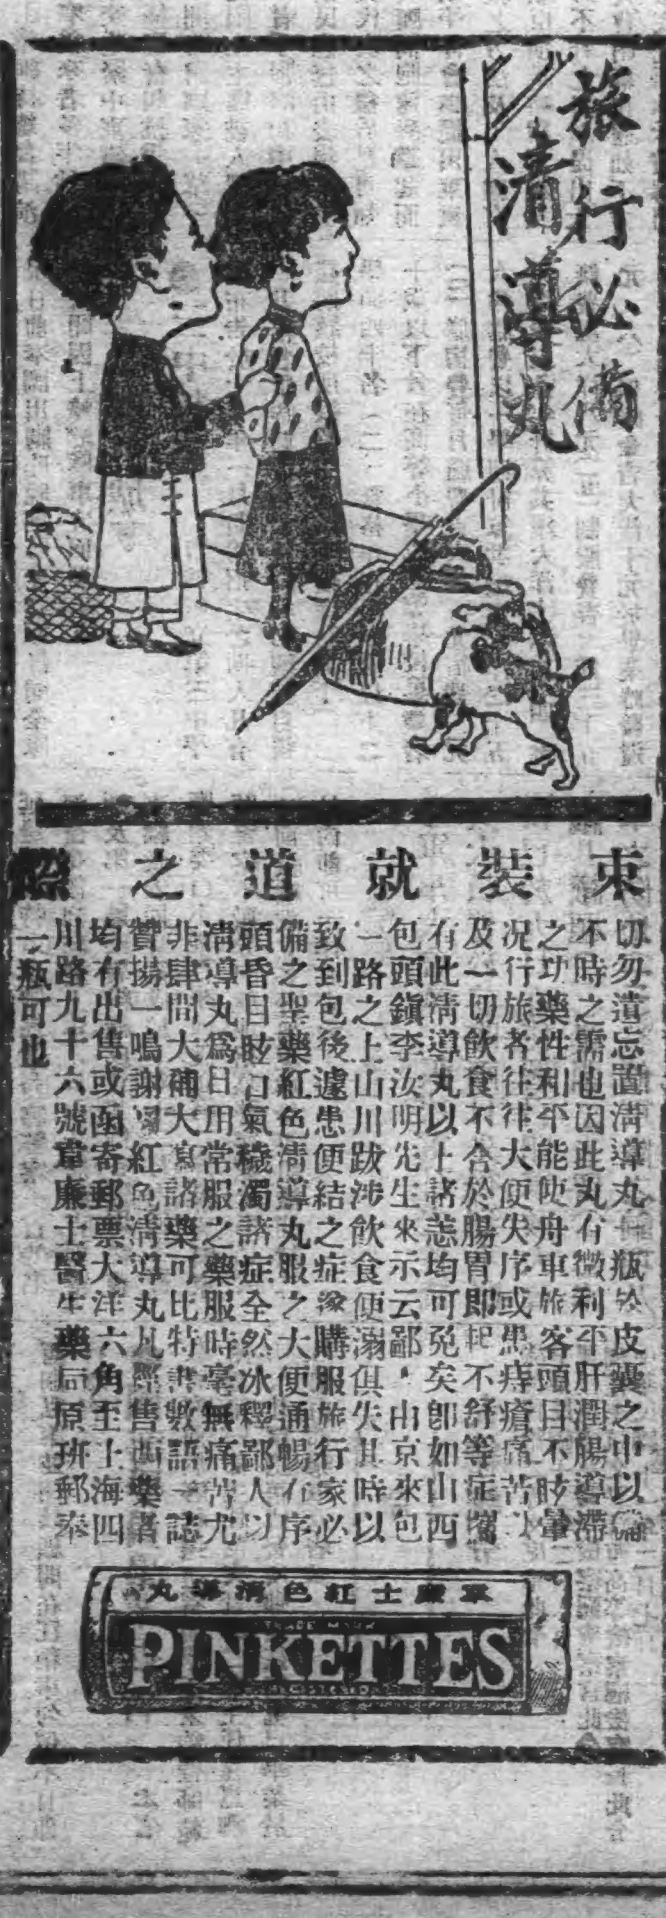 旅行必備
清導丸
束裝就道之際
切勿遺忘置清導丸一瓶於皮囊之中以備
不時之需也因此丸有微利平肝潤腸導滯
之功藥性和平能使舟車旅客頭目不眩暈
况行旅者往往大便失序或患痔瘡痛苦以
及一切飲食不合於腸胃即起不舒等症攜
有此清導丸以上諸恙均可免矣即如山西
包頭鎭李汝明先生來示云鄙人由京來包
一路之上山川跋涉飲食便溺俱失其時以
致到包後遽患便結之症遂購服旅行家必
備之聖藥紅色清導丸服之大便通暢有序
頭昏目眩口氣穢濁諸症全然冰釋鄙人以
清導丸爲日用常服之藥服時毫無痛苦尤
非肆間大瀉諸藥可比特書數語一誌
贊揚一鳴謝悃紅色清導丸凡經售西藥者
均有出售或函寄郵票大洋六角至上海四
川路九十六號韋廉士醫生藥局原班郵奉
一瓶可也
韋廉士紅色清導丸
TRADE MARK
PINKETTES